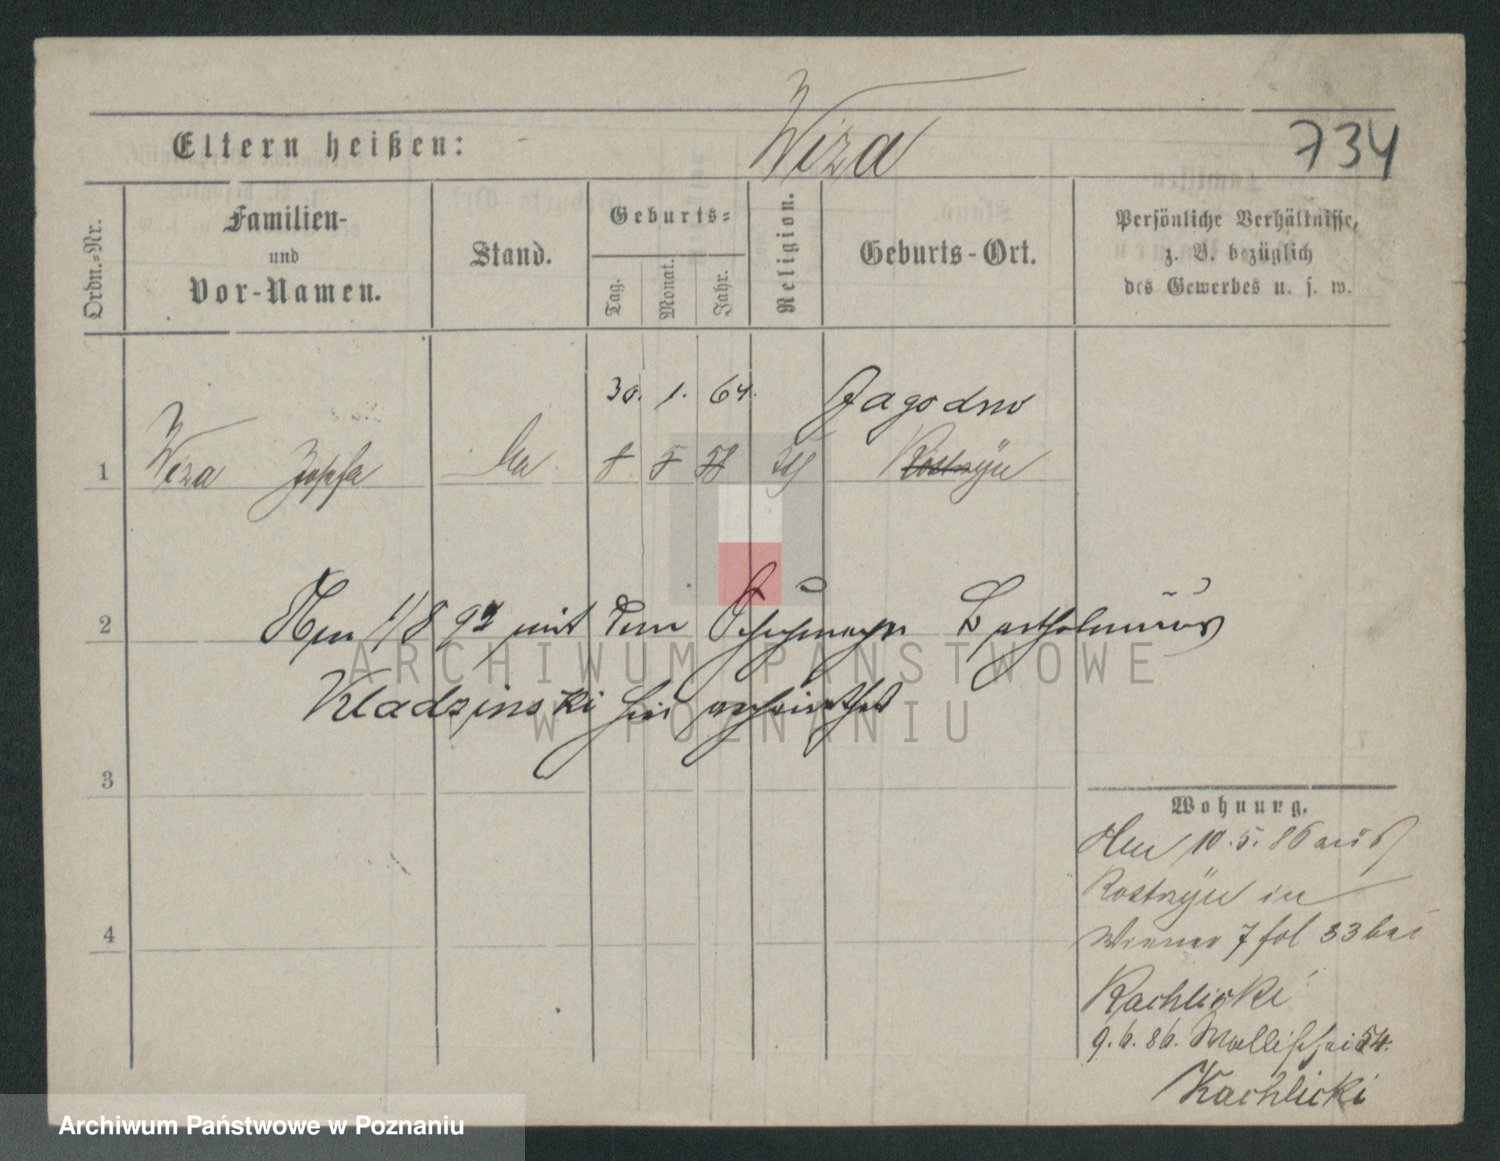 Wiza
734
Eltern heißen:
Ordn.-Nr.
Familien-
und
Vor-Namen.
Stand.
Geburts-
Tag.
Monat.
Jahr.
Religion.
Geburts-Ort.
Persönliche Verhältnisse,
z. B. bezüglich
des Gewerbes u. s. w.
30. 1. 64. Jagodno
1 Wiza Zofia 8 5 58 Kostrzyn
2 Am 1/8 92 mit dem Bartholomäus
Kladzinski hier verheirathet
3
4
Wohnung.
Am 10.5.86 aus
Kostrzyn in
Wiener 7 fol 33 bei
Kachlicki
9.6.86. Wallischei 54.
Kachlicki
ARCHIWUM PAŃSTWOWE
W POZNANIU
Archiwum Państwowe w Poznaniu